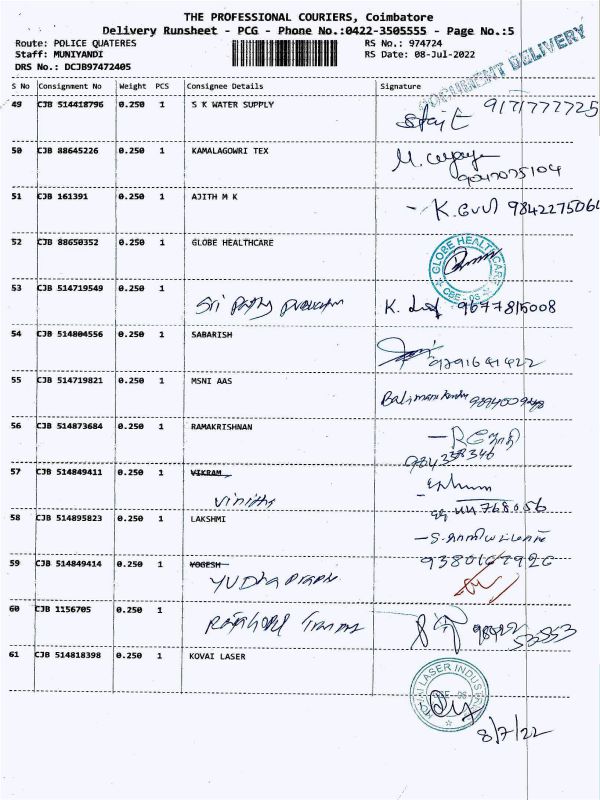 THE PROFESSIONAL COURIERS, Coimbatore
Delivery Runsheet - PCG - Phone No.:0422-3505555 - Page No.:5
Route: POLICE QUATERES RS No.: 974724
Staff: MUNIYANDI RS Date: 08-Jul-2022
DRS No.: DCJB97472405
DOCUMENT DELIVERY
S No Consignment No Weight PCS Consignee Details Signature
49 CJB 514418796 0.250 1 S K WATER SUPPLY 9171777725
50 CJB 88645226 0.250 1 KAMALAGOWRI TEX
9047075104
51 CJB 161391 0.250 1 AJITH M K 9842275061
52 CJB 88650352 0.250 1 GLOBE HEALTHCARE
GLOBE HEALTHCARE
CBE - 06
53 CJB 514719549 0.250 1
Sri K. 9677815008
54 CJB 514804556 0.250 1 SABARISH
9791641422
55 CJB 514719821 0.250 1 MSNI AAS
56 CJB 514873684 0.250 1 RAMAKRISHNAN
57 CJB 514849411 0.250 1 VIKRAM
Vinitha
58 CJB 514895823 0.250 1 LAKSHMI
59 CJB 514849414 0.250 1 YOGESH
60 CJB 1156705 0.250 1
61 CJB 514818398 0.250 1 KOVAI LASER
KOVAI LASER INDUSTRIES
CBE - 06
8/7/22